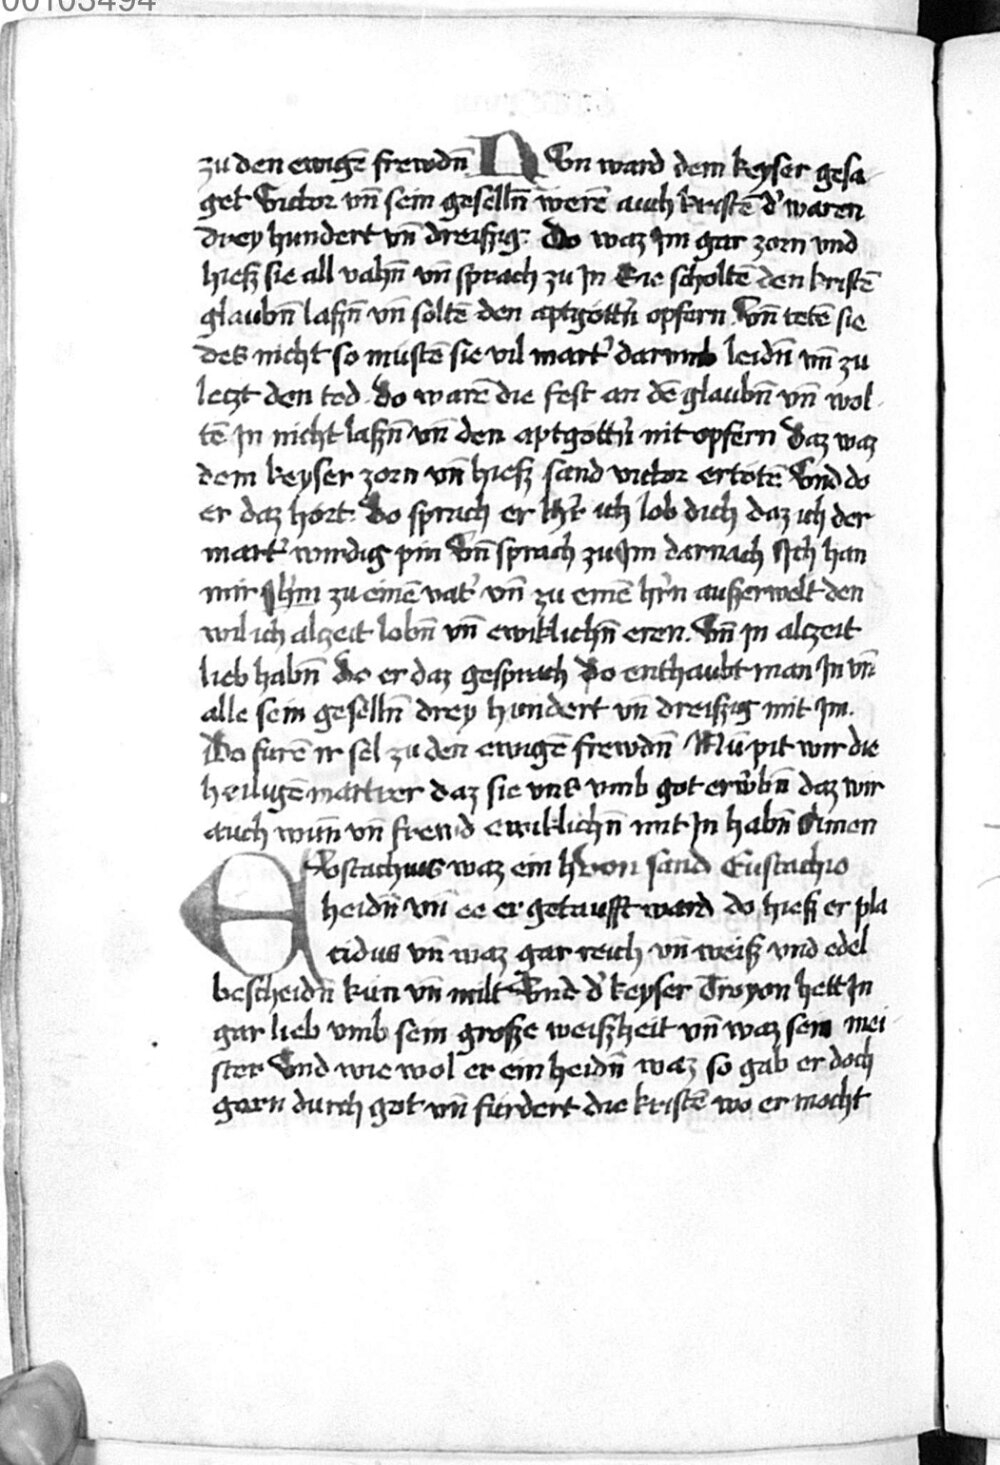 00103494
zu den ewigē frewdn̄ NVn ward dem keyser gesa
get Victor vn̄ sein geselln̄ werē auch kristē d' waren
drey hundert vn̄ dreiszig. Do waz Im gar zorn vnd
hiesz sie all vahn̄ vn̄ sprach zu In Sie scholtē den kristē
glaubn̄ laszn̄ vn̄ soltē den aptgöttn̄ opfern. Vn̄ tetē sie
des nicht so mustē sie vil mart' darumb leidn̄ vn̄ zu
letzt den tod. do warē die fest an dē glaubn̄ vn̄ wol
tē In nicht laszn̄ vn̄ den aptgöttn̄ nit opfern Daz waz
dem keyser zorn vn̄ hiesz sand victor ertotē Vnd do
er daz hort. Do sprach er hr̄ ich lob dich daz ich der
mart' wirdig pin Vn̄ sprach zu Im darnach Ich han
mir Ihm̄ zu einē vat' vn̄ zu einē hr̄n auszerwelt den
wil ich alczeit lobn̄ vn̄ ewiklichn̄ eren. Vn̄ In alczeit
lieb habn̄ Do er daz gesprach Do enthaubt man In vn̄
alle sein geselln̄ drey hundert vn̄ dreiszig mit Im.
Do furē ir sel zu den ewigē frewdn̄ Nū pit wir die
heiligē martrer daz sie vns vmb got erw'bn̄ daz wir
auch wun̄ vn̄ frewd ewiklichn̄ mit In habn̄ Amen
EVstachius waz ein h von sand Eustachio
heidn̄ vn̄ ee er getaufft ward do hiesz er pla
cidus vn̄ waz gar reich vn̄ weisz vnd edel
bescheidn̄ kun vn̄ milt Vnd d' keyser Troyon hett In
gar lieb vmb sein grosze weiszheit vn̄ waz sein mei
ster Vnd wie wol er ein heidn̄ waz so gab er doch
gern durch got vn̄ furdert die kristē wo er mocht